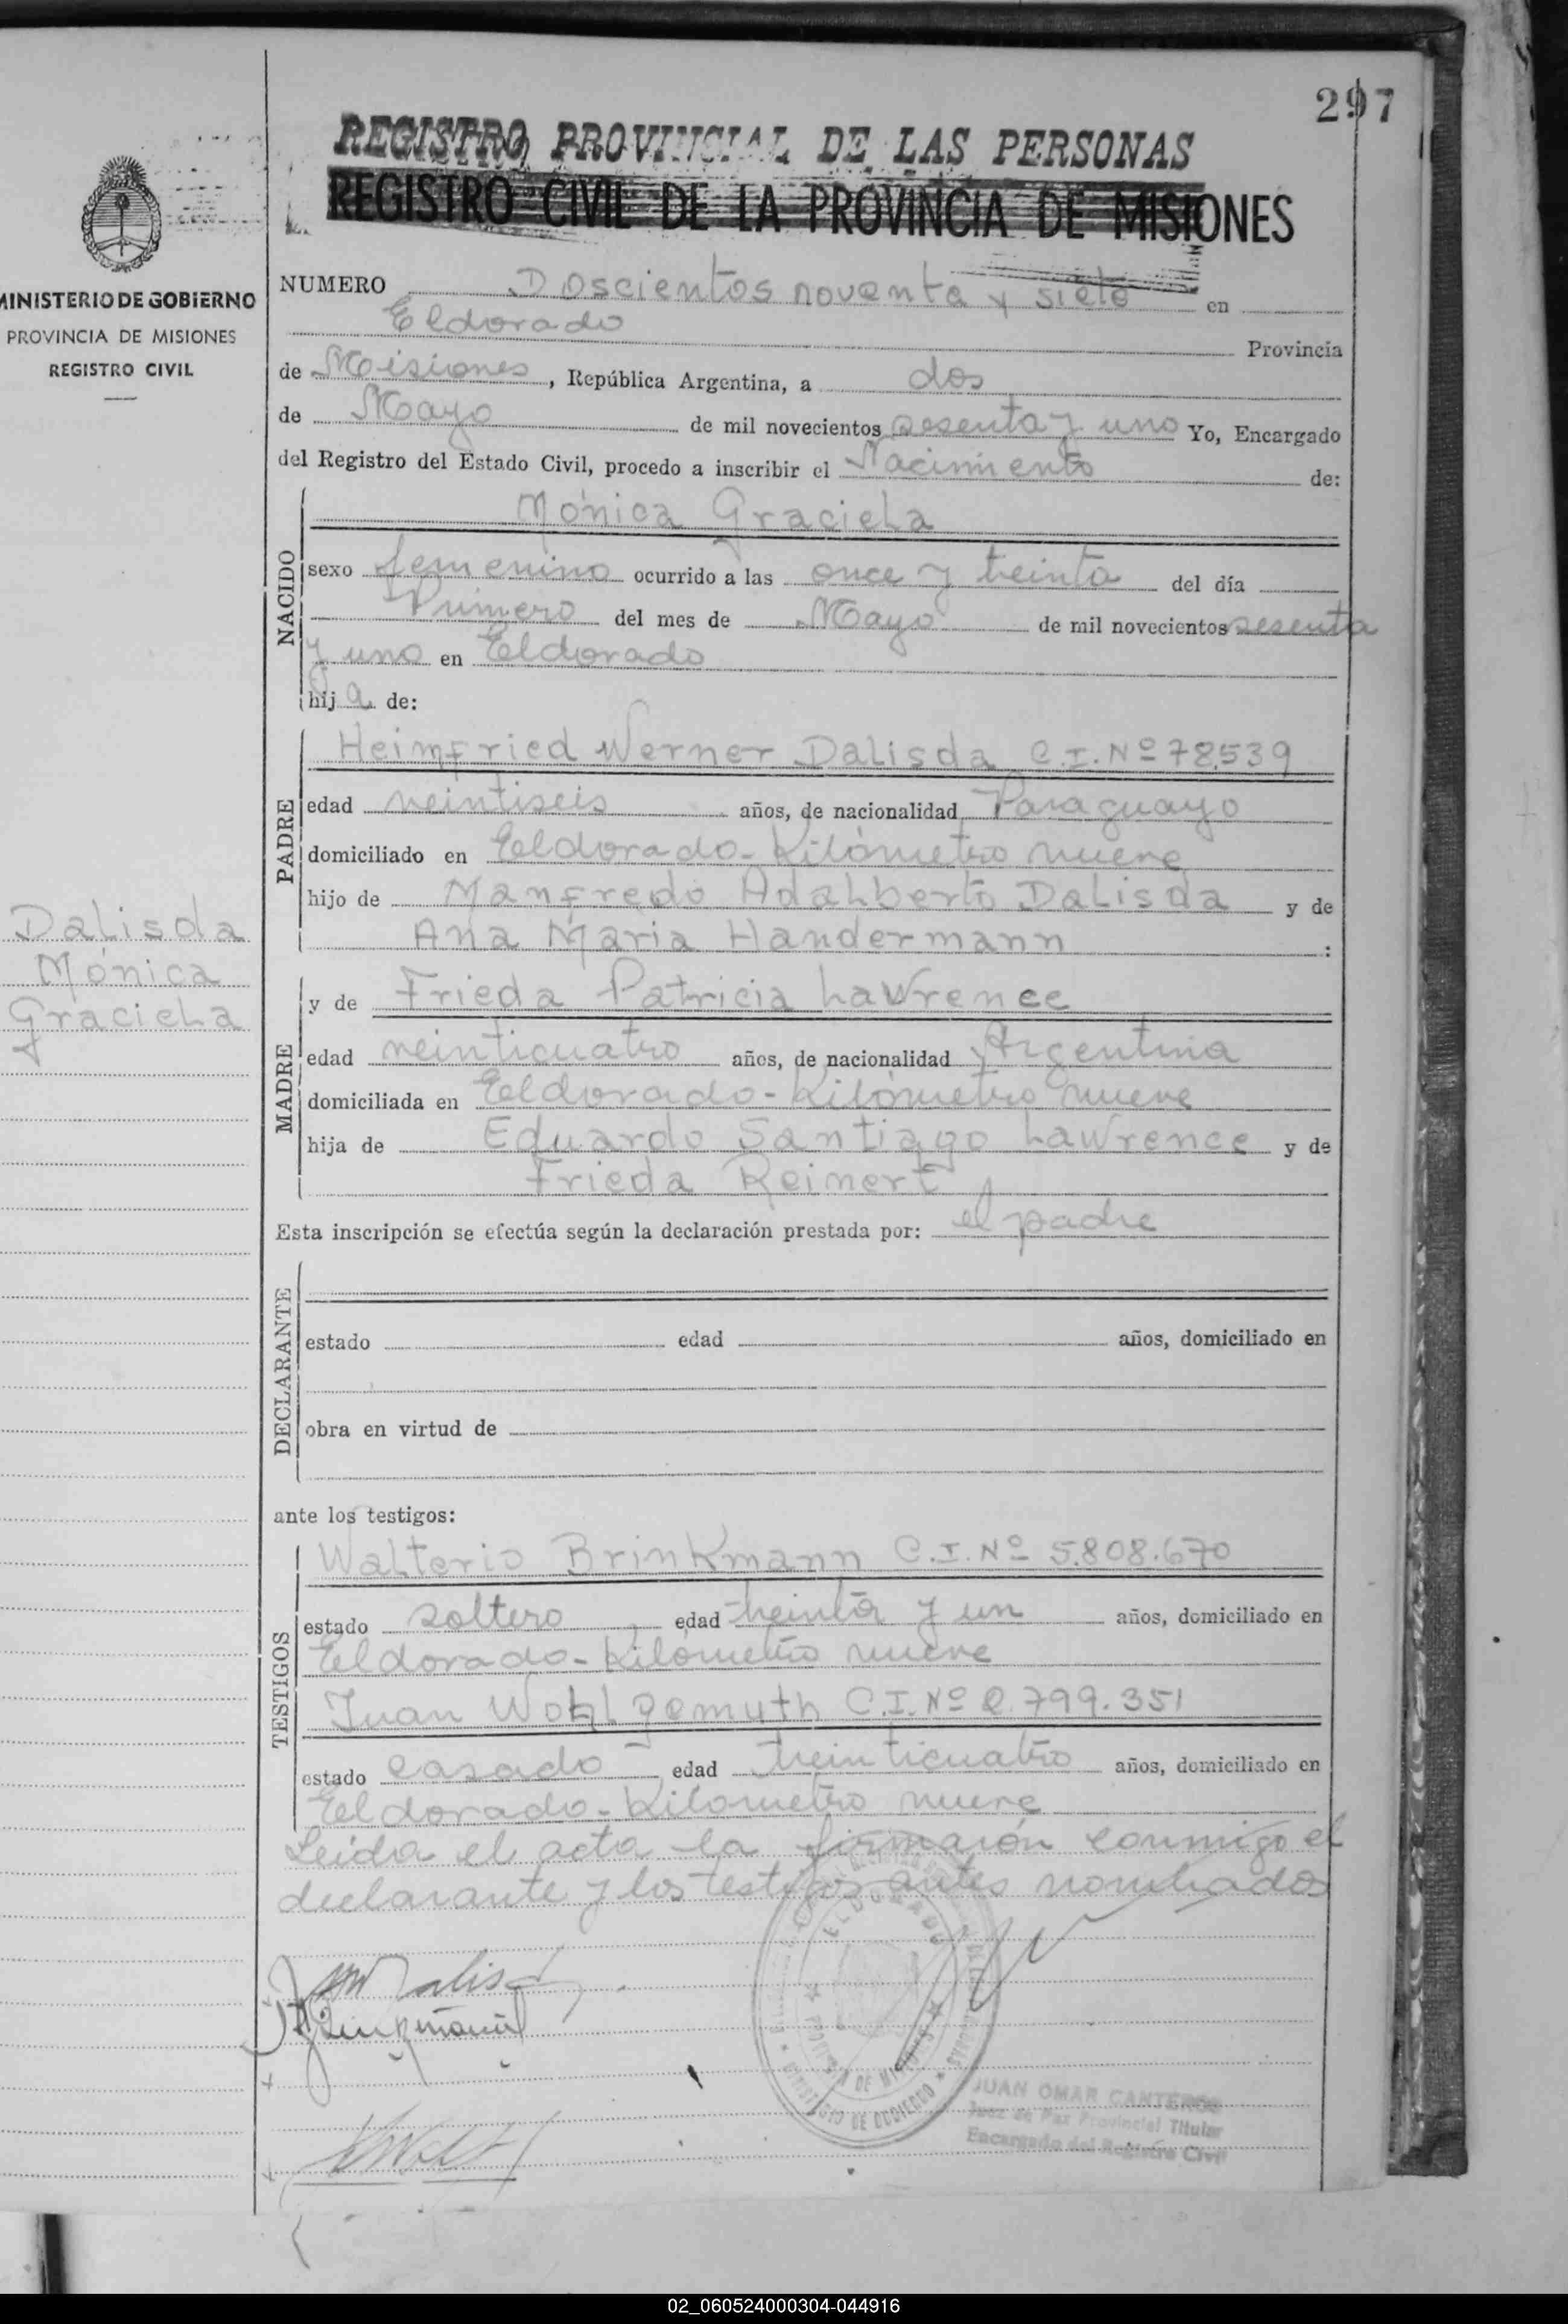 297
REGISTRO PROVINCIAL DE LAS PERSONAS
REGISTRO CIVIL DE LA PROVINCIA DE MISIONES
MINISTERIO DE GOBIERNO
PROVINCIA DE MISIONES
REGISTRO CIVIL
NUMERO Doscientos noventa y siete en
Eldorado Provincia
de Misiones, República Argentina, a dos
de Mayo de mil novecientos sesenta y uno Yo, Encargado
del Registro del Estado Civil, procedo a inscribir el Nacimiento de:
NACIDO
Mónica Graciela
sexo femenino ocurrido a las once y treinta del día
Primero del mes de Mayo de mil novecientos sesenta
y uno en Eldorado
hija de:
PADRE
Heimfried Werner Dalisda C.I. Nº 78.539
edad veintiseis años, de nacionalidad Paraguayo
domiciliado en Eldorado - Kilómetro nueve
hijo de Manfredo Adalberto Dalisda y de
Ana Maria Handermann :
Dalisda
Mónica
Graciela
MADRE
y de Frieda Patricia Lawrence
edad veinticuatro años, de nacionalidad Argentina
domiciliada en Eldorado - Kilómetro nueve
hija de Eduardo Santiago Lawrence y de
Frieda Reinert
Esta inscripción se efectúa según la declaración prestada por: el padre
DECLARANTE
estado edad años, domiciliado en
obra en virtud de
ante los testigos:
TESTIGOS
Walterio Brinkmann C.I. Nº 5.808.670
estado soltero edad treinta y un años, domiciliado en
Eldorado - Kilómetro nueve
Juan Wohlgemuth C.I. Nº 2.799.351
estado casado edad años, domiciliado en
Eldorado - Kilometro nueve
Leida el acta la firmarón conmigo el
declarante y los testigos antes nombrados
ELDORADO
PROVINCIA DE MISIONES
MINISTERIO DE GOBIERNO
JUAN OMAR CANTEROS
Juez de Paz Provincial Titular
Encargado del Registro Civil
02_060524000304-044916